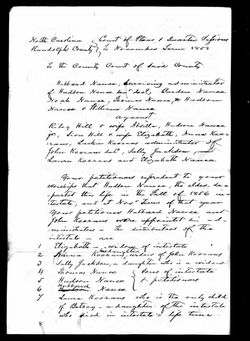 North Carolina } Court of Pleas & Quarter Sessions
Randolph County } To November Term 1858
To the County Court of said County
Hubbard Nance, surviving administrator
of Hudson Nance, Burden Nance
Noah Nance, Thomas Nance, & Hudson
Nance & William Nance
against
Riley Hill & wife Hudson Nance
Jr, Hill & wife Elizabeth,
Kearans, Kearans administrator of
John Kearans, Sally Jackson
Kearans and Elizabeth Nance
Your petitioners represent to your
worships that Hudson Nance, the elder, de-
parted this life in the Fall of 1856 in-
testate, and at Nov. Term of that year
Your petitioner Hubbard Nance and
John Kearans were appointed ad-
ministrators & the distributees of the
intestate are
1 Elizabeth - widow of intestate
2 Kearans, widow of John Kearans
3 Sally Jackson, a daughter who is a widow
4 Thomas Nance } sons of intestate
5 Hudson Nance } & petitioners
6 Hubbard Nance
7 Kearans who is the only child
of Betsey - a daughter of the intestate
who died in intestate's life time